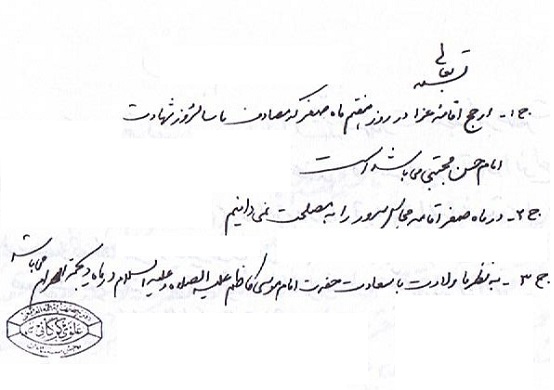 بسمه تعالی
ج۱- ارجح اقامه عزا در روز هفتم ماه صفر که مصادف با سالروز شهادت
امام حسن مجتبی می باشد است
ج۲- در ماه صفر اقامه مجالس سرور را به مصلحت نمی دانیم
ج۳- به نظر ما ولادت با سعادت حضرت امام موسی کاظم علیه الصلاه و علیه السلام در ماه ذیحجة الحرام می باشد
علوی گرگانی